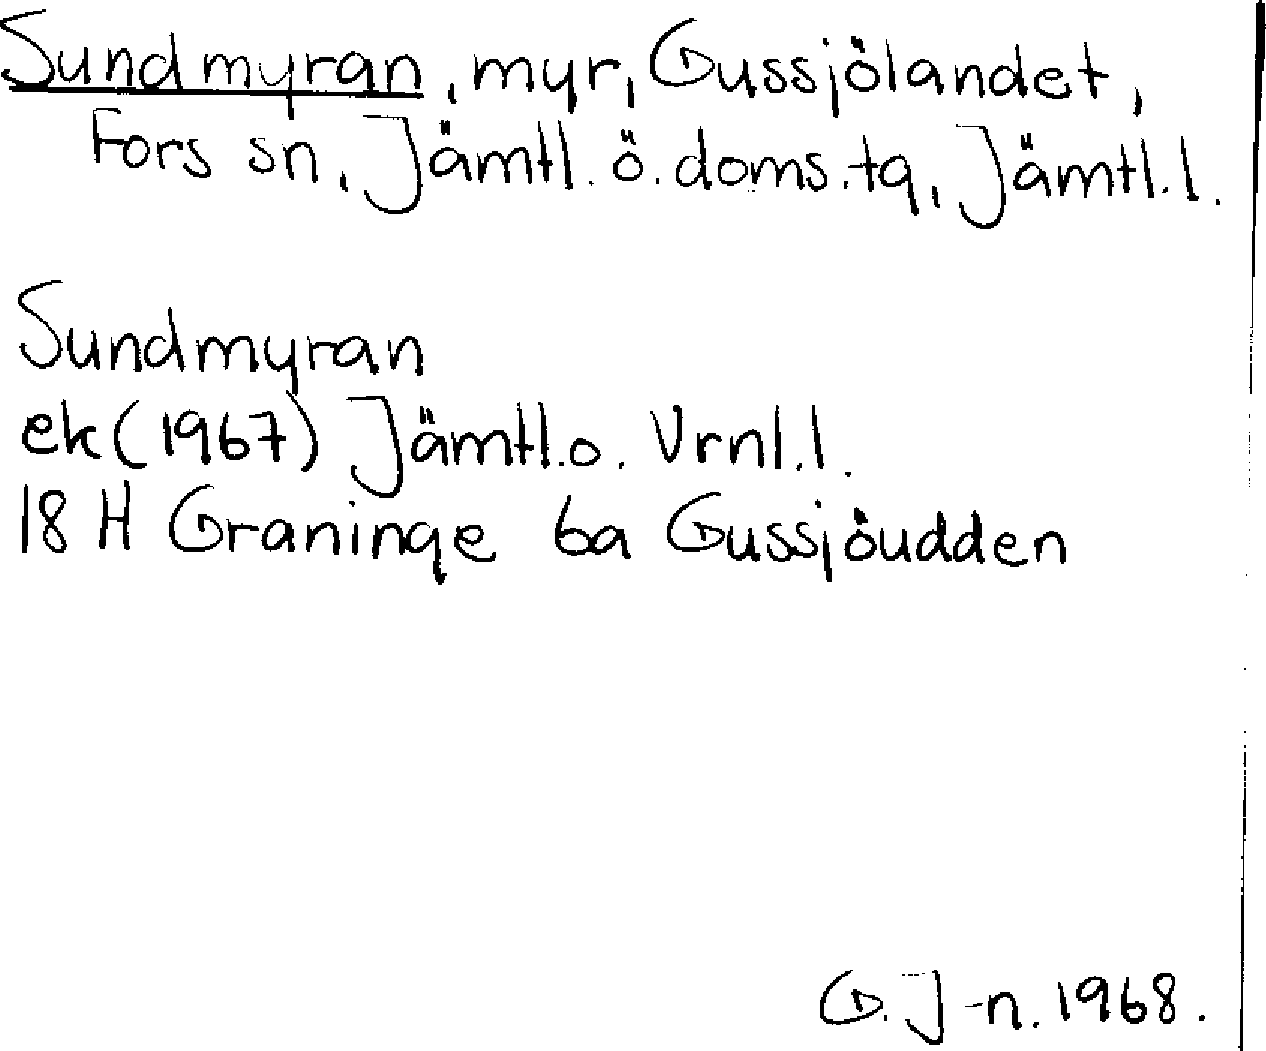 Sundmyran, myr, Gussjölandet,
Fors sn, Jämtl. ö. doms. tg, Jämtl. l.
Sundmyran
ek (1967) Jämtl. o. Vrnl. l.
18 H Graninge 6a Gussjöudden
G. J-n. 1968.